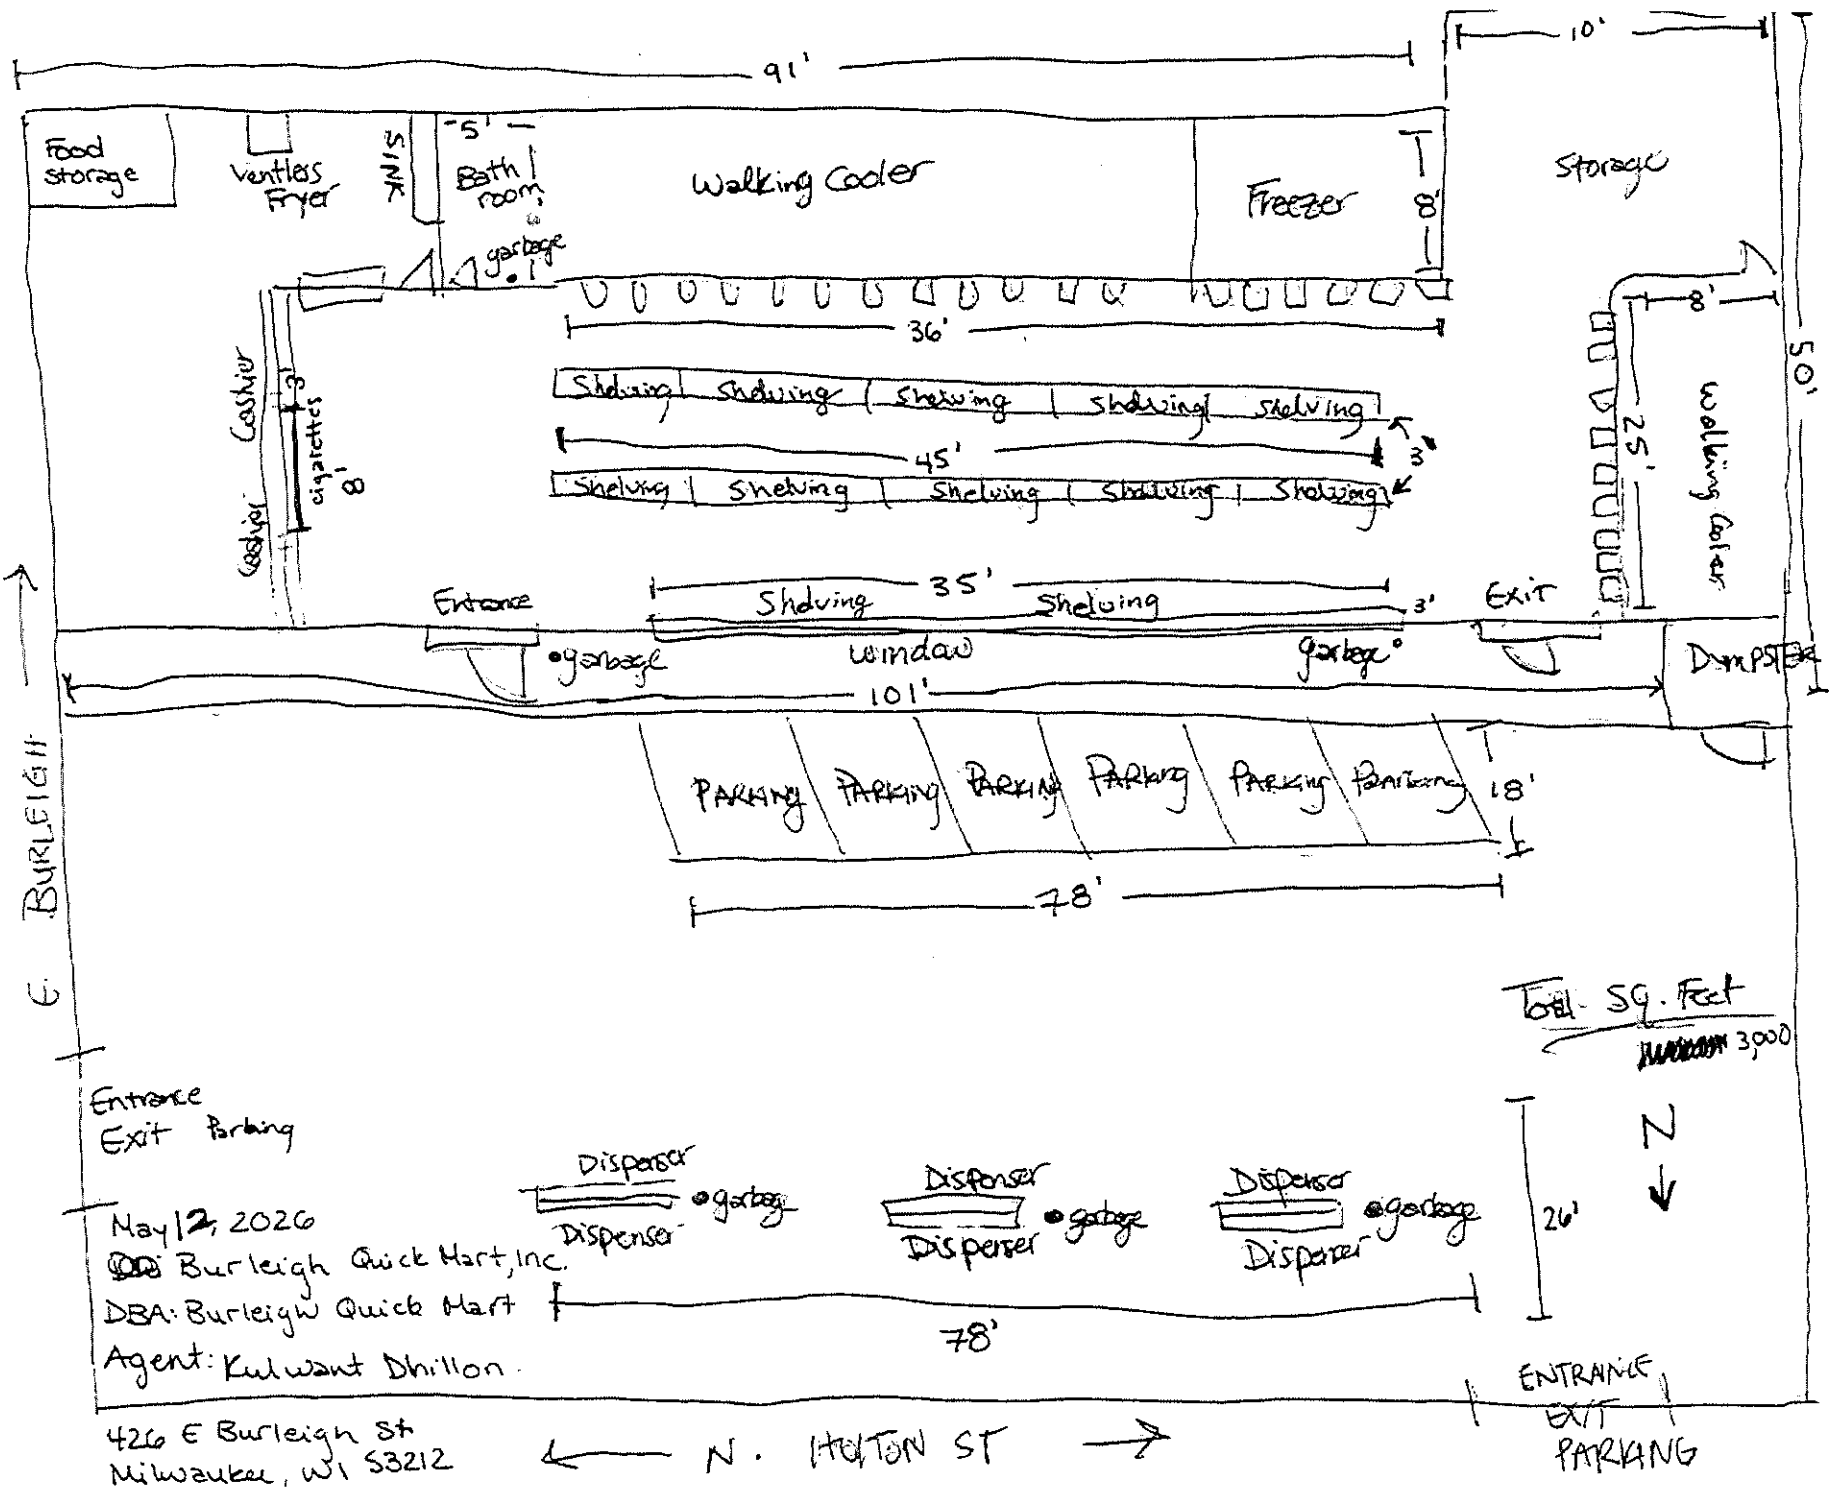 91'
10'
Food
storage
Ventless
Fryer
SINK
5'
Bath
room
garbage
Walking Cooler
Freezer
8'
Storage
8'
36'
50'
Cashier
3'
cigarettes
8'
Cashier
Shelving Shelving Shelving Shelving Shelving
45'
3'
Shelving Shelving Shelving Shelving Shelving
25'
Walking Cooler
35'
Entrance
Shelving Shelving
3'
Exit
garbage
window
garbage
DUMPSTER
101'
E. BURLEIGH
PARKING PARKING PARKING PARKING PARKING Parking
18'
78'
Total SQ. Feet
3,000
N
Entrance
Exit Parking
Dispenser
garbage
Dispenser
Dispenser
garbage
Dispenser
Dispenser
garbage
Dispenser
26'
78'
May 12, 2026
Burleigh Quick Mart, Inc.
DBA: Burleigh Quick Mart
Agent: Kulwant Dhillon.
426 E Burleigh St
Milwaukee, WI 53212
N. HOLTON ST
ENTRANCE
EXIT
PARKING